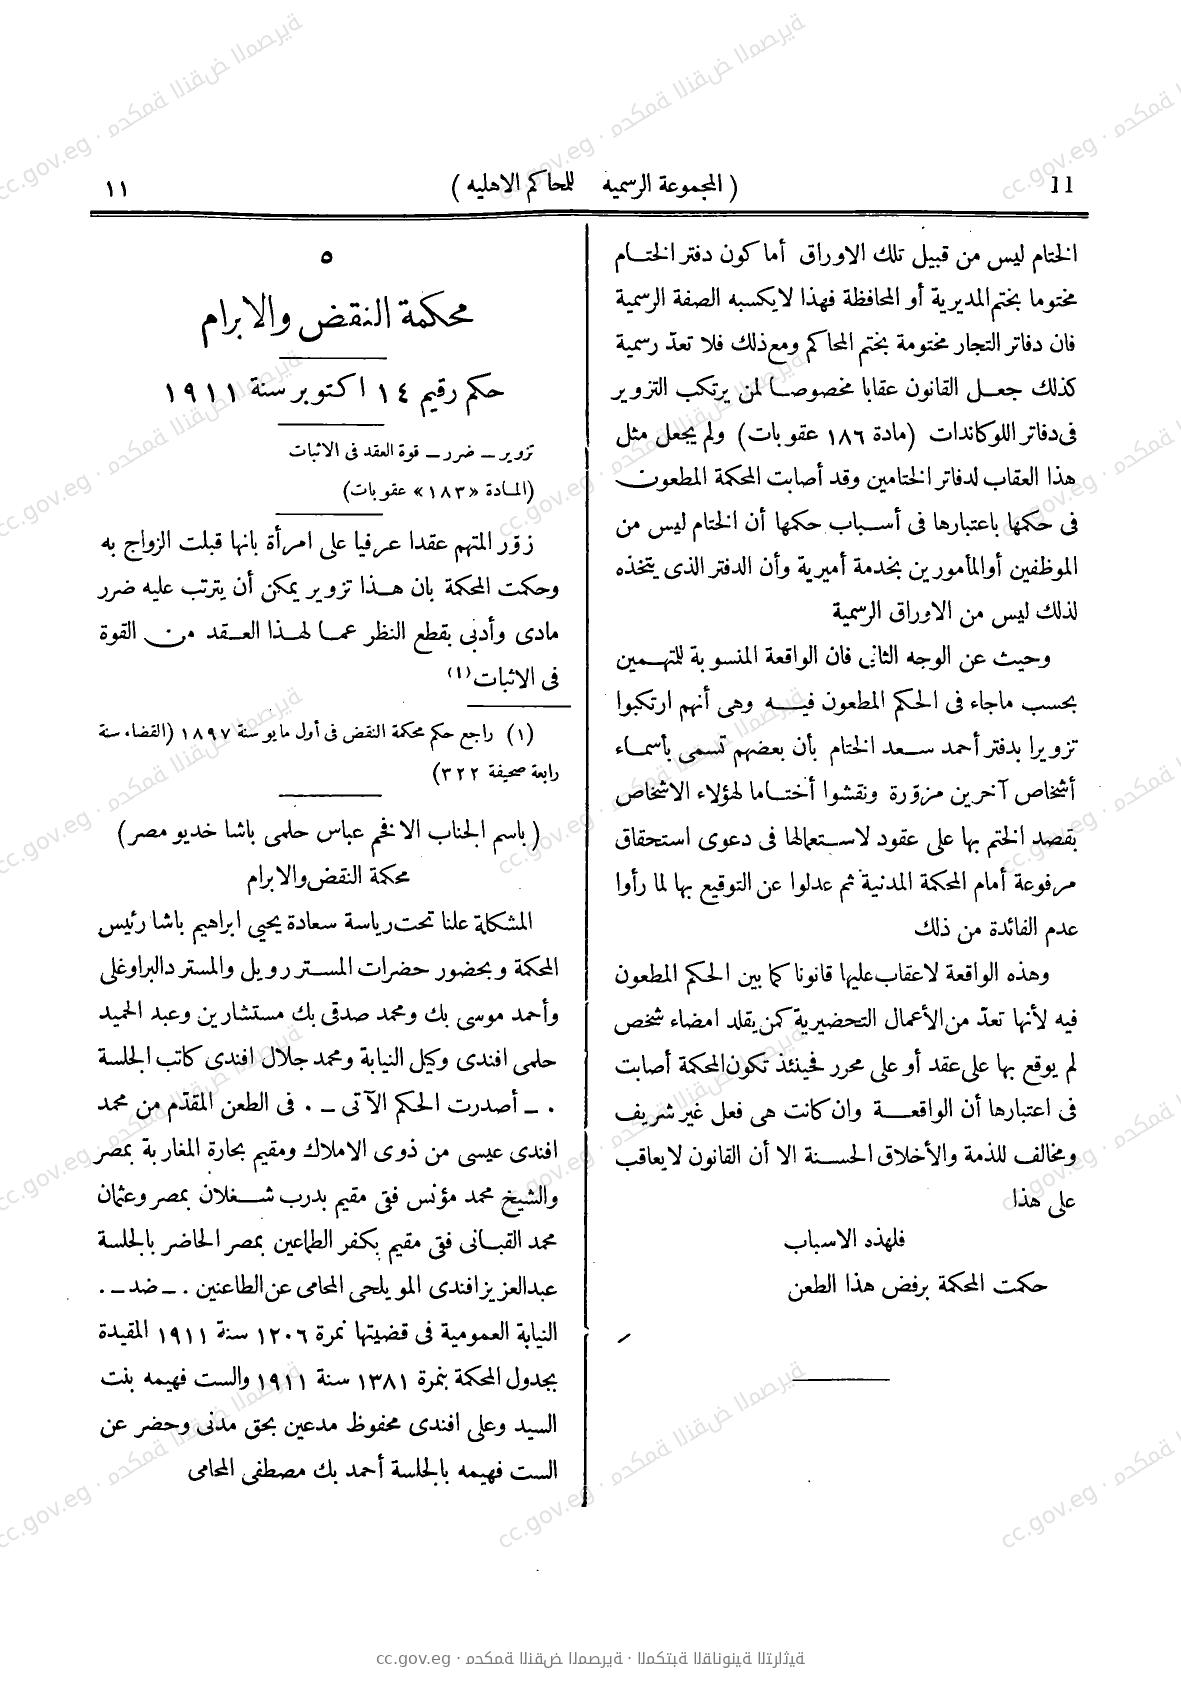 11 ( المجموعة الرسمية للمحاكم الاهليه ) ١١
الختام ليس من قبيل تلك الاوراق أما كون دفتر الختام
مختوما بختم المديرية أو المحافظة فهذا لا يكسبه الصفة الرسمية
فان دفاتر التجار مختومة بختم المحاكم ومع ذلك فلا تعدّ رسمية
كذلك جعل القانون عقابا مخصوصا لمن يرتكب التزوير
فى دفاتر اللوكاندات (مادة ١٨٦ عقوبات) ولم يجعل مثل
هذا العقاب لدفاتر الختامين وقد أصابت المحكمة المطعون
فى حكمها باعتبارها فى أسباب حكمها أن الختام ليس من
الموظفين أو المأمورين بخدمة أميرية وأن الدفتر الذى يتخذه
لذلك ليس من الاوراق الرسمية
وحيث عن الوجه الثانى فان الواقعة المنسوبة للمتهمين
بحسب ماجاء فى الحكم المطعون فيه وهى أنهم ارتكبوا
تزويرا بدفتر أحمد سعد الختام بأن بعضهم تسمى بأسماء
أشخاص آخرين مزوّرة ونقشوا أختاما لهؤلاء الاشخاص
بقصد الختم بها على عقود لاستعمالها فى دعوى استحقاق
مرفوعة أمام المحكمة المدنية ثم عدلوا عن التوقيع بها لما رأوا
عدم الفائدة من ذلك
وهذه الواقعة لاعقاب عليها قانونا كما بين الحكم المطعون
فيه لأنها تعدّ من الأعمال التحضيرية كمن يقلد امضاء شخص
لم يوقع بها على عقد أو على محرر فحينئذ تكون المحكمة أصابت
فى اعتبارها أن الواقعة وان كانت هى فعل غير شريف
ومخالف للذمة والأخلاق الحسنة الا أن القانون لا يعاقب
على هذا
فلهذه الاسباب
حكمت المحكمة برفض هذا الطعن
٥
محكمة النقض والابرام
حكم رقيم ١٤ اكتوبر سنة ١٩١١
تزوير ـ ضرر ـ قوة العقد فى الاثبات
(المادة «١٨٣» عقوبات)
زوّر المتهم عقدا عرفيا على امرأة بانها قبلت الزواج به
وحكمت المحكمة بان هذا تزوير يمكن أن يترتب عليه ضرر
مادى وأدبى بقطع النظر عما لهذا العقد من القوة
فى الاثبات (١)
(١) راجع حكم محكمة النقض فى أول مايو سنة ١٨٩٧ (القضاء سنة
رابعة صحيفة ٣٢٢)
( باسم الجناب الافخم عباس حلمى باشا خديو مصر )
محكمة النقض والابرام
المشكلة علنا تحت رياسة سعادة يحيي ابراهيم باشا رئيس
المحكمة وبحضور حضرات المستر رويل والمستر دالبراوغلى
وأحمد موسى بك ومحمد صدقى بك مستشارين وعبد الحميد
حلمى افندى وكيل النيابة ومحمد جلال افندى كاتب الجلسة
. ـ أصدرت الحكم الآتى ـ . فى الطعن المقدّم من محمد
افندى عيسى من ذوى الاملاك ومقيم بحارة المغاربة بمصر
والشيخ محمد مؤنس فقى مقيم بدرب شغلان بمصر وعثمان
محمد القبانى فقى مقيم بكفر الطماعين بمصر الحاضر بالجلسة
عبدالعزيز افندى المويلحى المحامى عن الطاعنين . ـ ضد ـ .
النيابة العمومية فى قضيتها نمرة ١٢٠٦ سنة ١٩١١ المقيدة
بجدول المحكمة بنمرة ١٣٨١ سنة ١٩١١ والست فهيمه بنت
السيد وعلى افندى محفوظ مدعين بحق مدنى وحضر عن
الست فهيمه بالجلسة أحمد بك مصطفى المحامى
cc.gov.eg · محكمة النقض المصرية · المكتبة القانونية التراثية